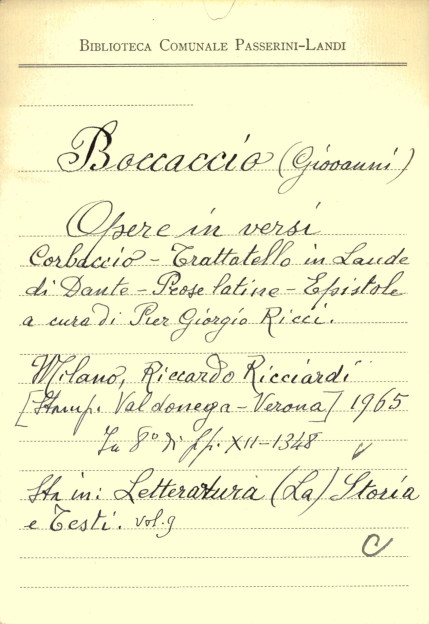 BIBLIOTECA COMUNALE PASSERINI-LANDI
Boccaccio (Giovanni)
Opere in versi
Corbaccio - Trattatello in Laude
di Dante - Prose latine - Epistole
a cura di Pier Giorgio Ricci.
Milano, Riccardo Ricciardi
[Stamp. Valdonega - Verona] 1965
In 8° di pp. XII-1348
Sta in: Letteratura (La) Storia
e Testi. vol. 9
C